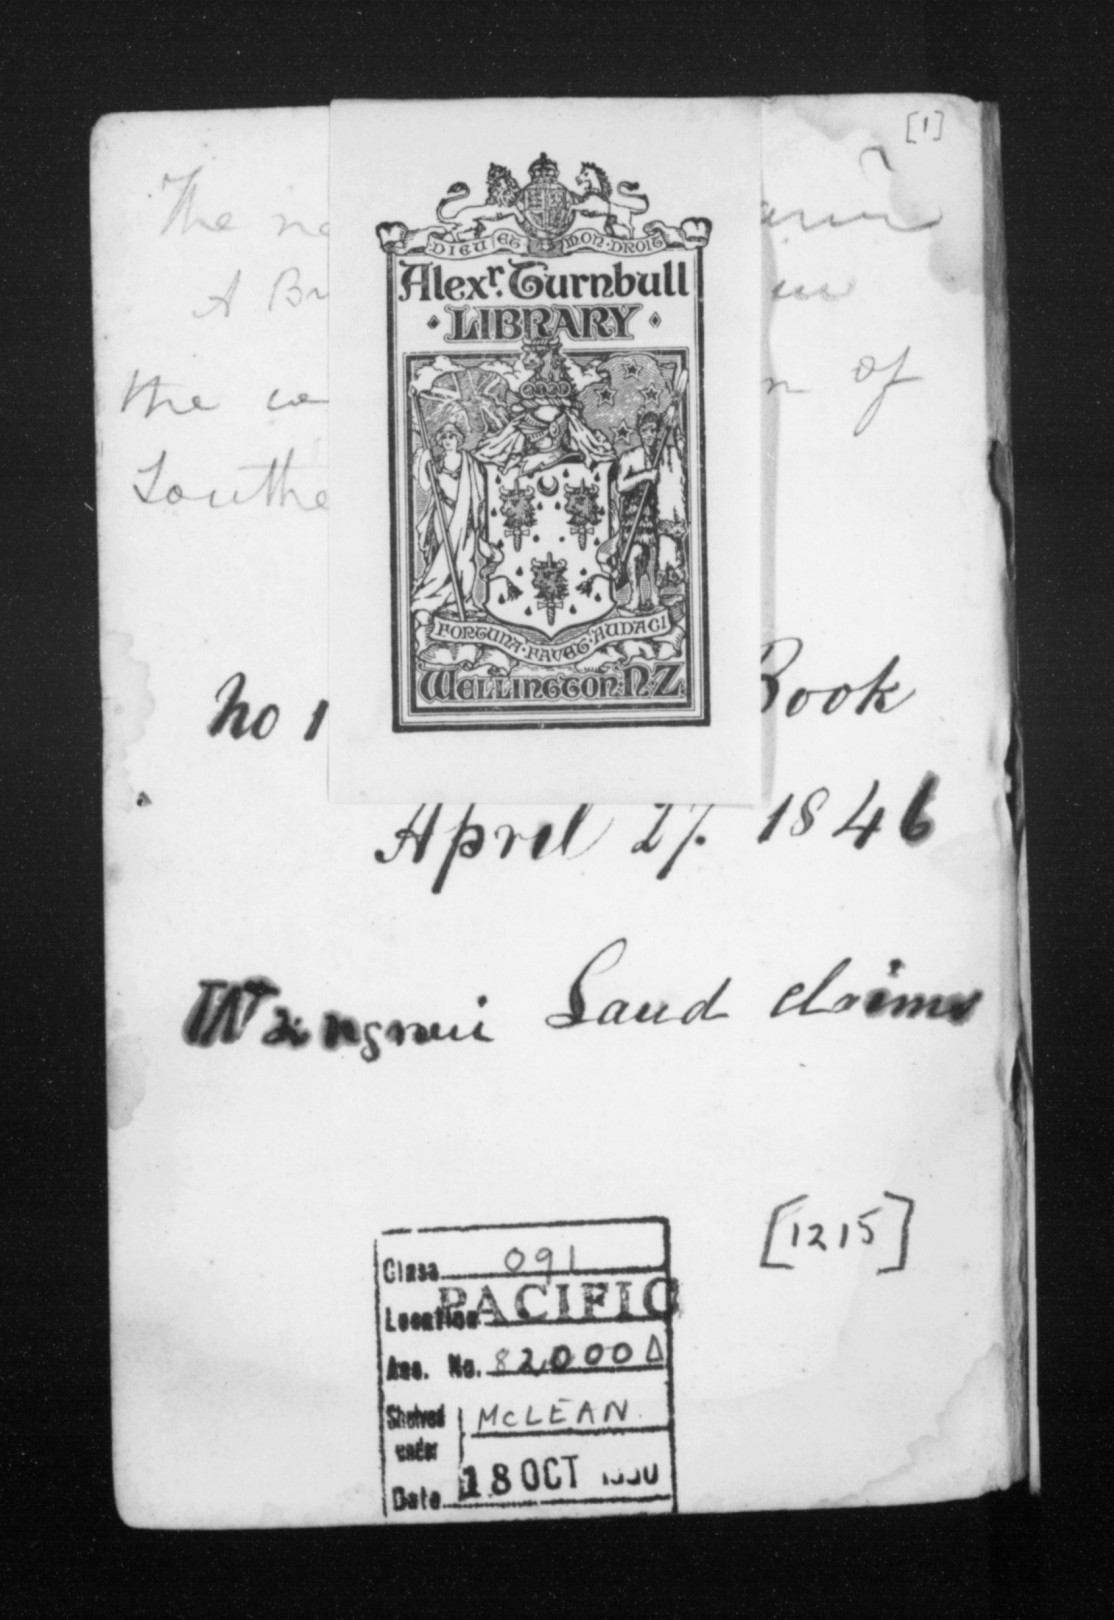 [1]
The
A Br
the of
Southe
DIEU ET MON DROIT
Alexr. Turnbull
LIBRARY
FORTUNA FAVET AUDACI
WELLINGTON N.Z
No 1 Book
April 27. 1846
Land claims
[1215]
Class 091
Location PACIFIC
Acc. No. 82,000
Shelved under McLEAN
Date 18 OCT